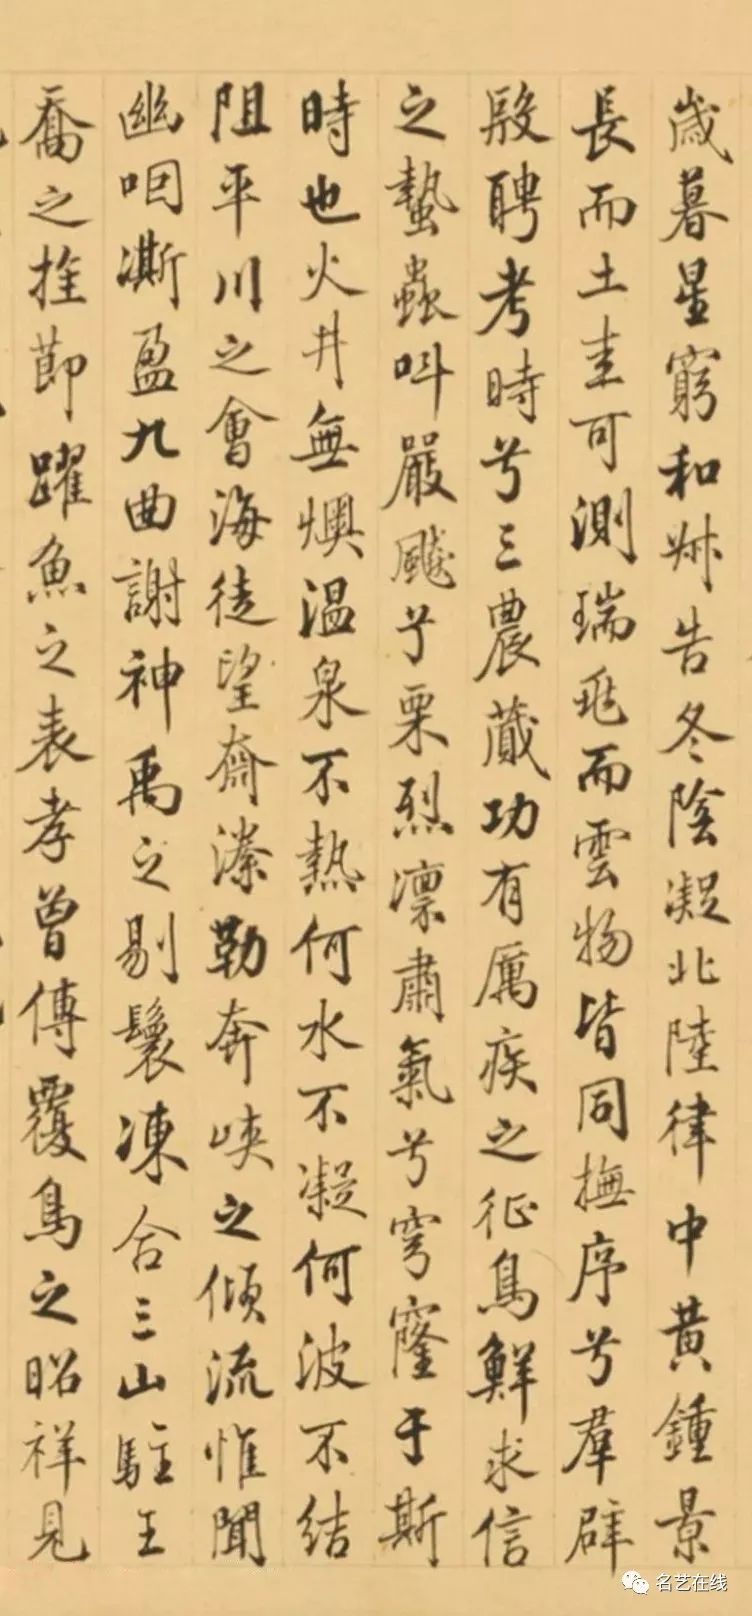 歲暮星窮和叔告冬陰凝北陸律中黄鍾景
長而土圭可測瑞兆而雲物皆同撫序兮羣辟
殷聘考時兮三農蕆功有厲疾之征鳥鮮求信
之蟄蟲叫嚴飈兮栗烈凛肅氣兮穹窿于斯
時也火井無燠温泉不熱何水不凝何波不結
阻平川之會海徒望齊溱勒奔峽之傾流惟聞
幽咽澌盈九曲謝神禹之剔鬟凍合三山駐王
喬之拴節躍魚之表孝曾傳覆鳥之昭祥見
名艺在线